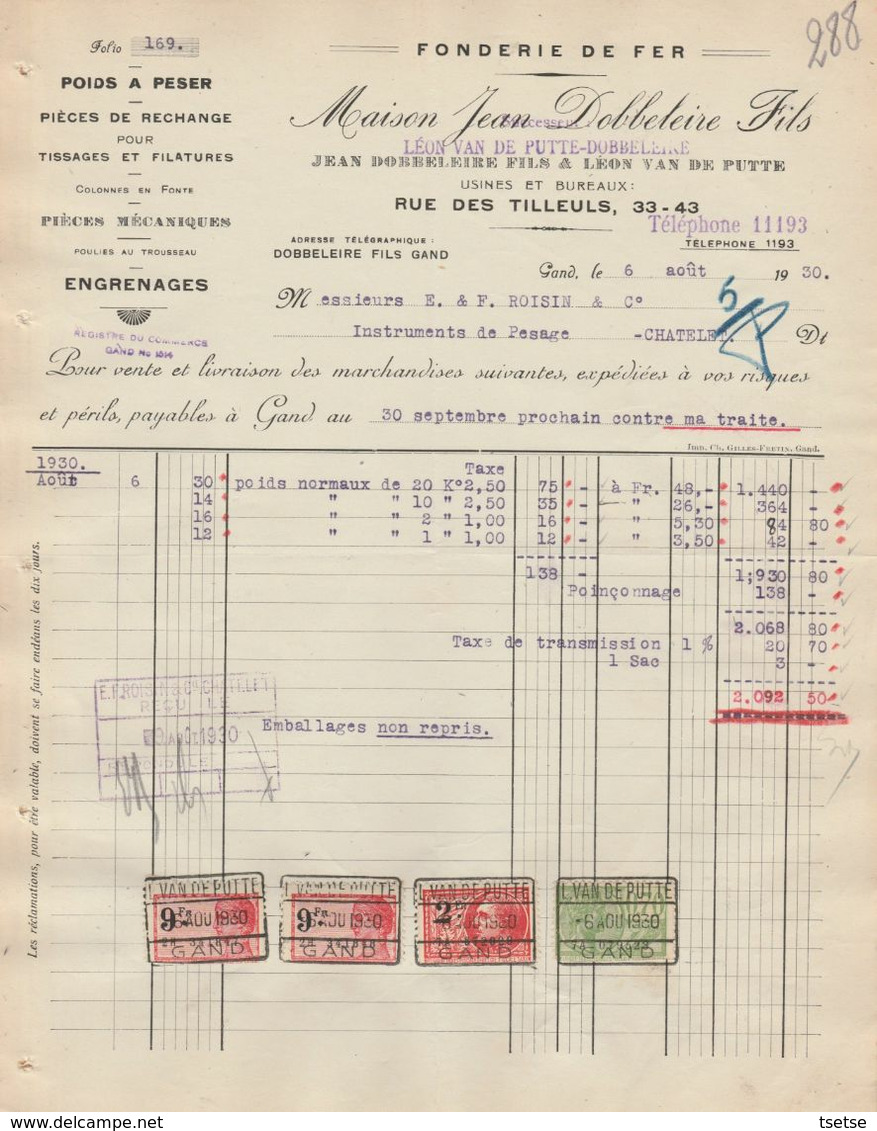 Folio 169.
288
FONDERIE DE FER
POIDS A PESER
PIÈCES DE RECHANGE
POUR
TISSAGES ET FILATURES
COLONNES EN FONTE
PIÈCES MÉCANIQUES
POULIES AU TROUSSEAU
ENGRENAGES
REGISTRE DU COMMERCE
GAND No 1014
Maison Jean Dobbeleire Fils
Successeur
LÉON VAN DE PUTTE-DOBBELEIRE
JEAN DOBBELEIRE FILS & LÉON VAN DE PUTTE
USINES ET BUREAUX:
RUE DES TILLEULS, 33-43
Téléphone 11193
TÉLÉPHONE 1193
ADRESSE TÉLÉGRAPHIQUE :
DOBBELEIRE FILS GAND
Gand, le 6 août 1930.
Messieurs E. & F. ROISIN & C°
Instruments de Pesage -CHATELET. Dt
5
Pour vente et livraison des marchandises suivantes, expédiées à vos risques
et périls, payables à Gand au 30 septembre prochain contre ma traite.
Imp. Ch. GILLES-FRETIN, Gand.
1930. Taxe
Août 6 30 poids normaux de 20 K° 2,50 75 - à Fr. 48,- 1.440 -
14 " " 10 " 2,50 35 - " 26,- 364 -
16 " " 2 " 1,00 16 - " 5,30 84 80
12 " " 1 " 1,00 12 - " 3,50 42 -
138 - 1;930 80
Poinçonnage 138 -
2.068 80
Taxe de transmission 1 % 20 70
1 Sac 3 -
2.092 50
E.F. ROISIN & C° CHATELET
REÇU LE
9 AOÛT 1930
RÉPONDU LE
Emballages non repris.
Les réclamations, pour être valable, doivent se faire endéans les dix jours.
L. VAN DE PUTTE
9 Fr.
-6 AOU 1930
GAND
L. VAN DE PUTTE
9 Fr.
-6 AOU 1930
GAND
L. VAN DE PUTTE
2 Fr.
-6 AOU 1930
GAND
L. VAN DE PUTTE
-6 AOU 1930
GAND
tsetse